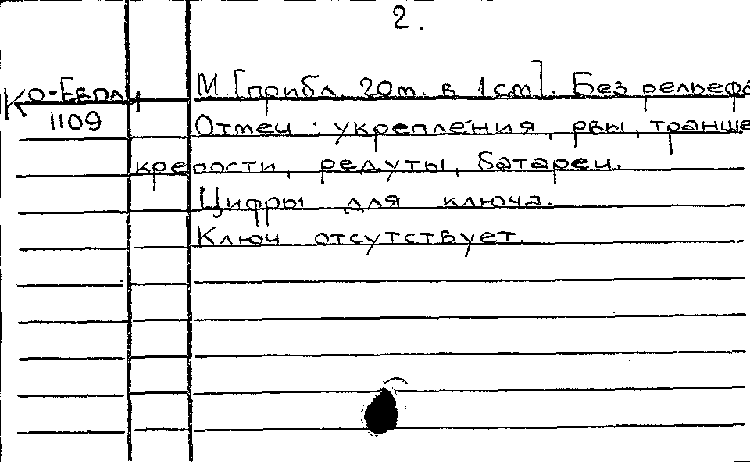 2.
Ко-Евпл М [прибл. 20м. в 1см]. Без рельефа
1109 Отмеч: укрепления, рвы, транше
крепости, редуты, батареи.
Цифры для ключа.
Ключ отсутствует.